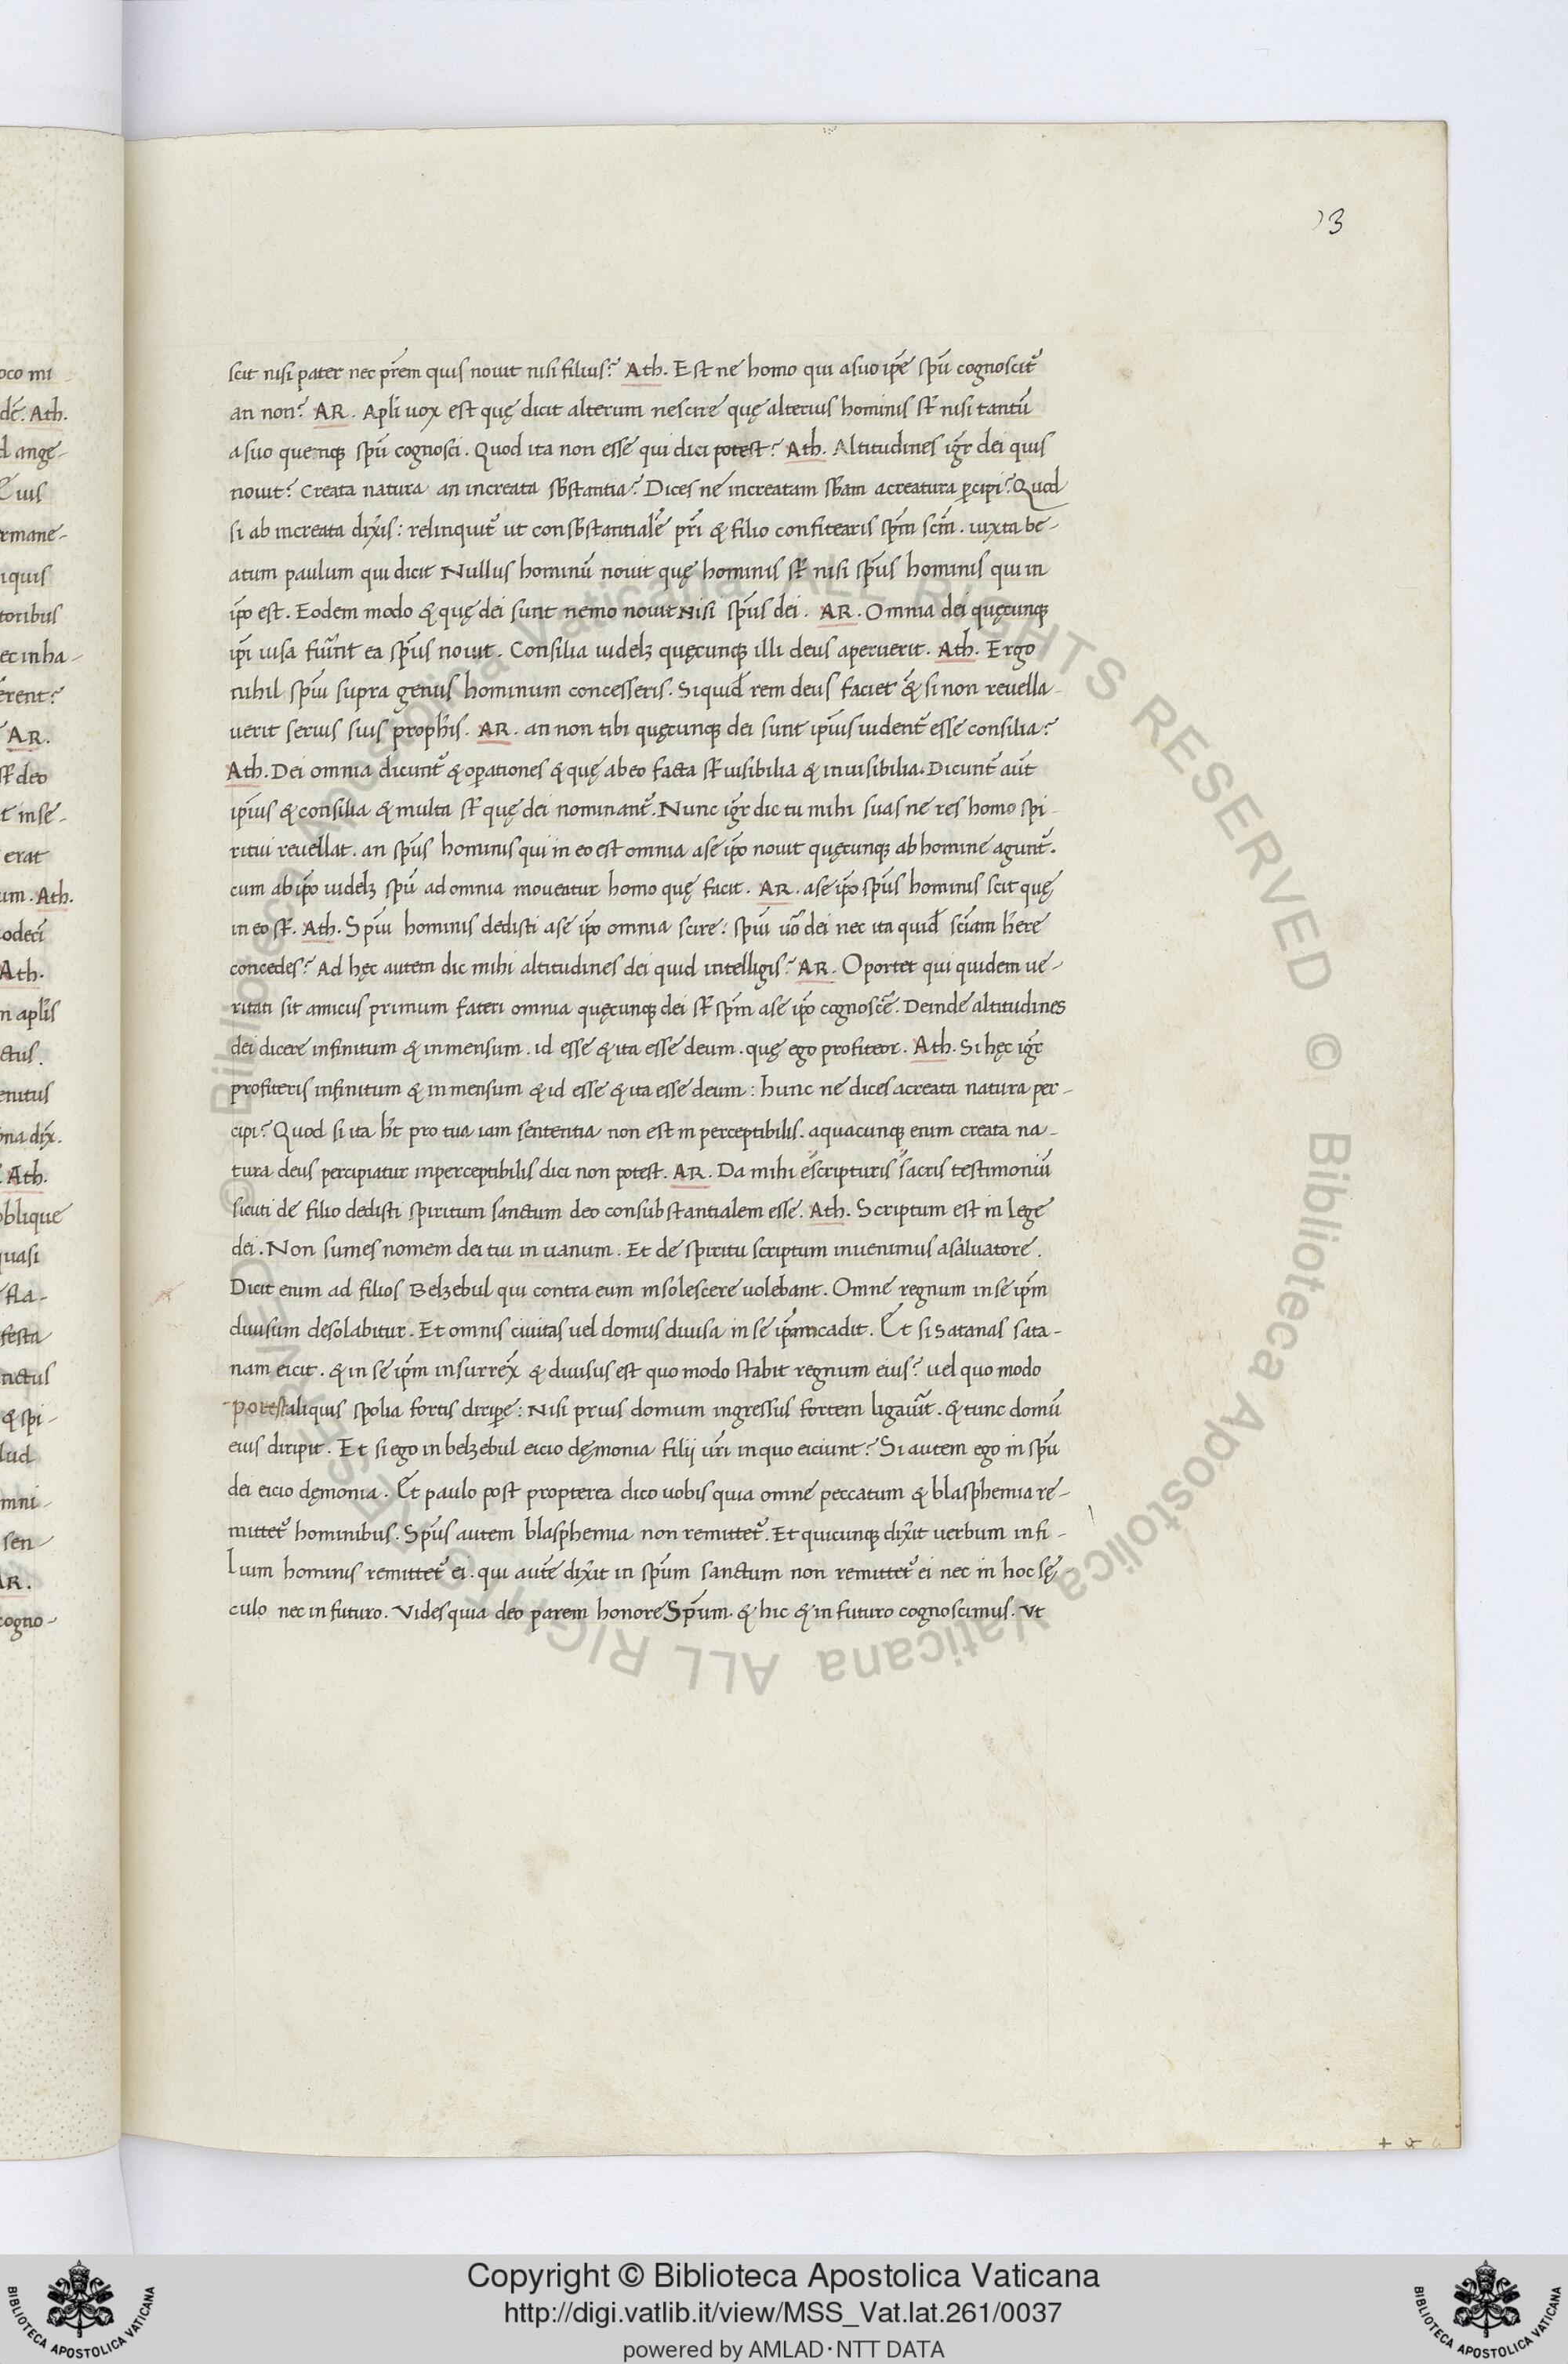 13
scit nisi pater nec pr̃em quis nouit nisi filius? Ath. Est ne homo qui a suo ip̃e spũ cognoscit᷑
an non? AR. Apl̃i uox est quę dicit alterum nescire quę alterius hominis st̃ nisi tantũ
a suo quenq; spũ cognosci. Quod ita non esse qui dici potest? Ath. Altitudines igr̃ dei quis
nouit? Creata natura an increata sb̃stantia? Dices ne increatam sb̃am a creatura ꝑcipi? Quod
si ab increata dix̃is: relinquit᷑ ut consb̃stantialẽ pr̃i & filio confitearis sp̃m scm̃. iuxta be-
atum paulum qui dicit Nullus hominũ nouit quę hominis st̃ nisi sp̃us hominis qui in
ip̃o est. Eodem modo & quę dei sunt nemo nouit Nisi sp̃us dei. AR. Omnia dei quęcunq;
ip̃i uisa fũint ea sp̃us nouit. Consilia uidelz quęcunq; illi deus aperuerit. Ath. Ergo
nihil sp̃ui supra genus hominum concesseris. Siquid̃ rem deus faciet & si non reuella-
uerit seruis suis proph̃is. AR. an non tibi quęcunq; dei sunt ip̃ius uident᷑ esse consilia?
Ath. Dei omnia dicunt᷑ & oꝑationes & quę ab eo facta st̃ uisibilia & inuisibilia. Dicunt᷑ aut̃
ip̃ius & consilia & multa st̃ quę dei nominant᷑. Nunc igr̃ dic tu mihi suas ne res homo spi-
ritui reuellat. an sp̃us hominis qui in eo est omnia a se ip̃o nouit quęcunq; ab homine agunt᷑.
cum ab ip̃o uidelz spũ ad omnia moueatur homo quę facit. AR. a se ip̃o sp̃us hominis scit quę
in eo st̃. Ath. Sp̃ui hominis dedisti a se ip̃o omnia scire? sp̃ui uõ dei nec ita quid̃ scĩam hr̃e
concedes? Ad hęc autem dic mihi altitudines dei quid intelligis? AR. Oportet qui quidem ue-
ritati sit amicus primum fateri omnia quęcunq; dei st̃ sp̃m a se ip̃o cognoscẽ. Deinde altitudines
dei dicere infinitum & inmensum. id esse & ita esse deum. quę ego profiteor. Ath. Si hęc igr̃
profiteris infinitum & inmensum & id esse & ita esse deum: hunc ne dices a creata natura per-
cipi? Quod si ita ht̃ pro tua iam sententia non est inperceptibilis. a quacunq; enim creata na-
tura deus percipiatur inperceptibilis dici non potest. AR. Da mihi e scripturis sacris testimoniũ
sicuti de filio dedisti spiritum sanctum deo consubstantialem esse. Ath. Scriptum est in lege
dei. Non sumes nomem dei tui in uanum. Et de spiritu scriptum inuenimus a saluatore.
Dicit enim ad filios Belzebul qui contra eum insolescere uolebant. Omne regnum in se ip̃m
diuisum desolabitur. Et omnis ciuitas uel domus diuisa in se ip̃am cadit. Et si satanas sata-
nam eicit. & in se ip̃m insurrex̃ & diuisus est quo modo stabit regnum eius? uel quo modo
potest aliquis spolia fortis diriꝑe: Nisi prius domum ingressus fortem ligaũit. & tunc domũ
eius diripit. Et si ego in belzebul eicio dęmonia filij ur̃i in quo eiciunt? Si autem ego in spũ
dei eicio dęmonia. Et paulo post propterea dico uobis quia omne peccatum & blasphemia re-
mittet᷑ hominibus. Sp̃us autem blasphemia non remittet᷑. Et quicunq; dix̃it uerbum in fi-
lium hominis remittet᷑ ei. qui autẽ dix̃it in sp̃um sanctum non remittet᷑ ei nec in hoc sę-
culo nec in futuro. Vides quia deo parem honore Sp̃um. & hic & in futuro cognoscimus. Vt
Copyright © Biblioteca Apostolica Vaticana
http://digi.vatlib.it/view/MSS_Vat.lat.261/0037
powered by AMLAD·NTT DATA